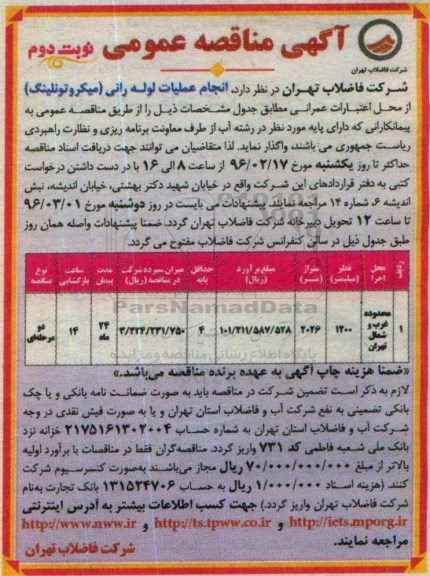 آگهی مناقصه عمومی
نوبت دوم
شرکت فاضلاب تهران
شرکت فاضلاب تهران در نظر دارد، انجام عملیات لوله رانی (میکروتونلینگ)
از محل اعتبارات عمرانی مطابق جدول مشخصات ذیل را از طریق مناقصه عمومی به
پیمانکارانی که دارای پایه مورد نظر در رشته آب از طرف معاونت برنامه ریزی و نظارت راهبردی
ریاست جمهوری می باشند، واگذار نماید. لذا متقاضیان می توانند جهت دریافت اسناد مناقصه
حداکثر تا روز یکشنبه مورخ ۹۶/۰۲/۱۷ از ساعت ۸ الی ۱۶ با در دست داشتن درخواست
کتبی به دفتر قراردادهای این شرکت واقع در خیابان شهید دکتر بهشتی، خیابان اندیشه، نبش
اندیشه ۶، شماره ۱۴ مراجعه نمایند. پیشنهادات می بایست در روز دوشنبه مورخ ۹۶/۰۳/۰۱
تا ساعت ۱۲ تحویل دبیرخانه شرکت فاضلاب تهران گردد. ضمنا پیشنهادات واصله همان روز
طبق جدول ذیل در سالن کنفرانس شرکت فاضلاب مفتوح می گردد.
ردیف	محل اجرا	قطر (میلیمتر)	متراژ (متر)	مبلغ برآورد (ریال)	حداقل پایه	میزان سپرده شرکت در مناقصه (ریال)	مدت پیمان	ساعت بازگشایی	نوع مناقصه
۱	محدوده غرب و شمال تهران	۱۲۰۰	۲۰۲۶	۱۰۱/۲۱۱/۵۸۷/۵۲۸	۴	۳/۳۲۴/۲۳۱/۷۵۰	۲۴ ماه	۱۴	دو مرحله‌ای
ParsNamadData
پایگاه اطلاع رسانی مناقصه و مزایده
«ضمنا هزینه چاپ آگهی به عهده برنده مناقصه می‌باشد.»
لازم به ذکر است تضمین شرکت در مناقصه باید به صورت ضمانت نامه بانکی و یا چک
بانکی تضمینی به نفع شرکت آب و فاضلاب استان تهران و یا به صورت فیش نقدی در وجه
شرکت آب و فاضلاب استان تهران به شماره حساب ۲۱۷۵۱۶۱۳۰۲۰۰۴ خزانه نزد
بانک ملی شعبه فاطمی کد ۷۳۱ واریز گردد. مناقصه‌گران فقط در مناقصات با برآورد اولیه
بالاتر از مبلغ ۷۰/۰۰۰/۰۰۰/۰۰۰ ریال مجاز می‌باشند به‌صورت کنسرسیوم شرکت
کنند. (هزینه اسناد ۱/۰۰۰/۰۰۰ ریال به حساب ۱۳۱۵۲۴۷۰۶ بانک تجارت به‌نام
شرکت فاضلاب تهران واریز گردد.) جهت کسب اطلاعات بیشتر به آدرس اینترنتی
http://iets.mporg.ir و http://ts.tpww.co.ir و http://www.nww.ir
مراجعه نمایند.
شرکت فاضلاب تهران